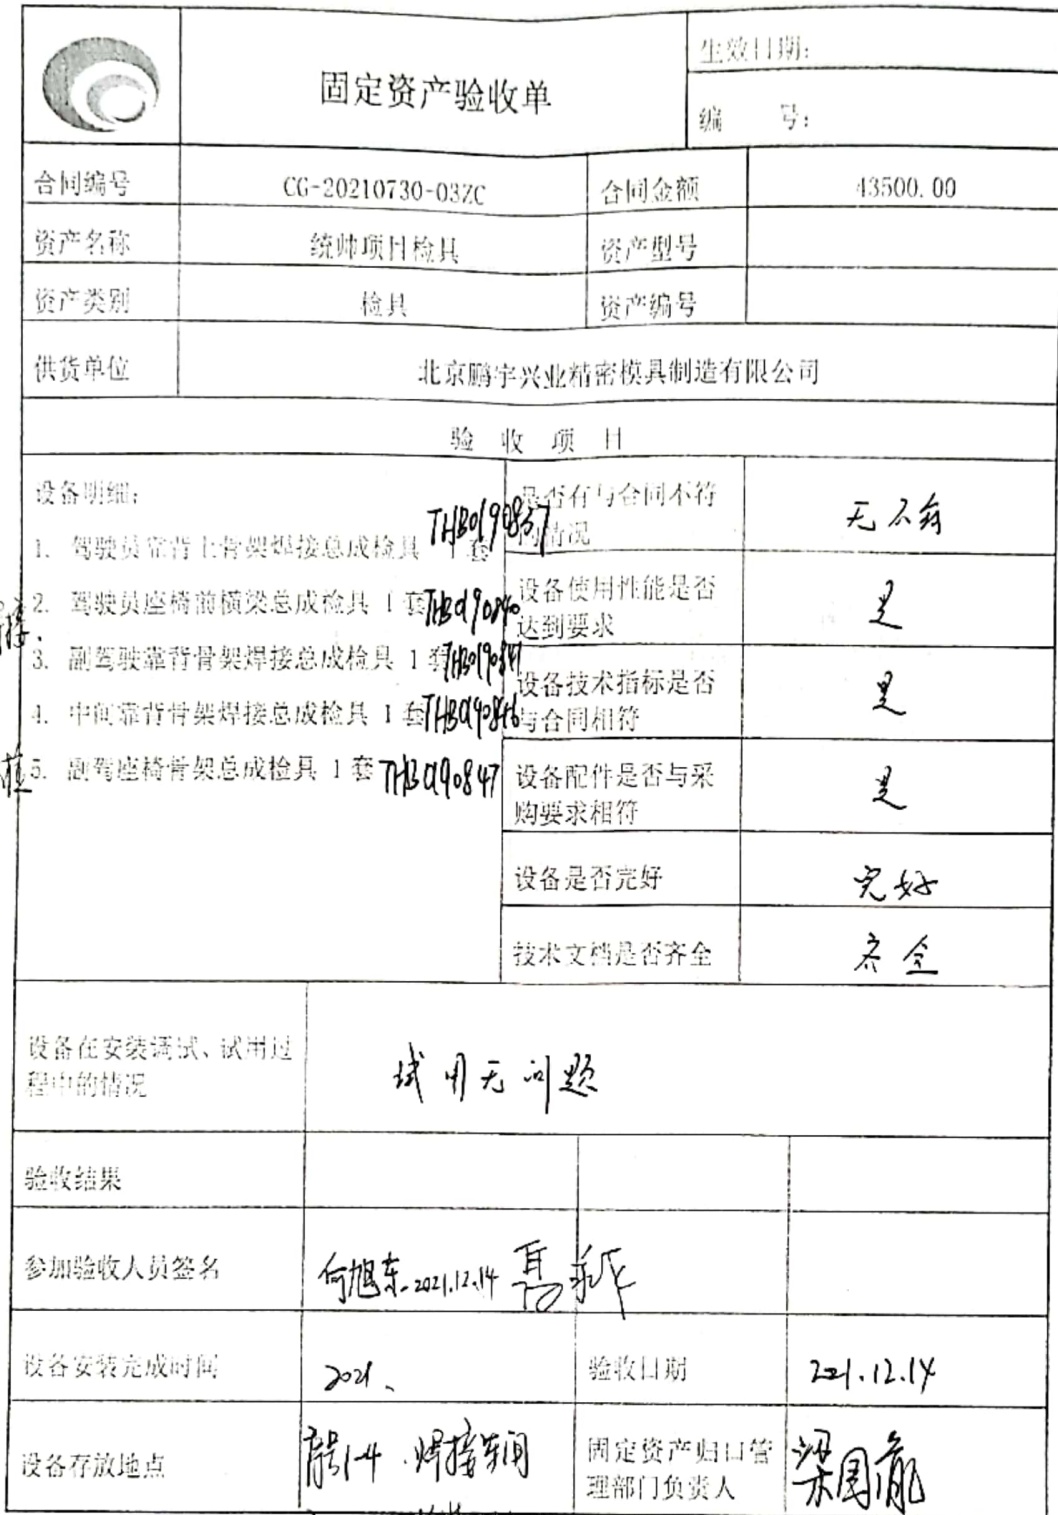 固定资产验收单
生效日期:
编 号:
合同编号 CG-20210730-03ZC 合同金额 43500.00
资产名称 统帅项目检具 资产型号
资产类别 检具 资产编号
供货单位 北京鹏宇兴业精密模具制造有限公司
验 收 项 目
设备明细:
1. 驾驶员靠背上骨架焊接总成检具 1 套 THB0190837
2. 驾驶员座椅前横梁总成检具 1 套 THB0190840
3. 副驾驶靠背骨架焊接总成检具 1 套 THB0190841
4. 中间靠背骨架焊接总成检具 1 套 THB0190846
5. 副驾座椅骨架总成检具 1 套 THB0190847
是否有与合同不符
的情况
无不符
设备使用性能是否
达到要求
是
设备技术指标是否
与合同相符
是
设备配件是否与采
购要求相符
是
设备是否完好 完好
技术文档是否齐全 齐全
设备在安装调试、试用过
程中的情况
试用无问题
验收结果
参加验收人员签名 何旭东 2021.12.14
设备安装完成时间 2021、 验收日期 2021.12.14
设备存放地点 焊接车间
固定资产归口管
理部门负责人
梁国